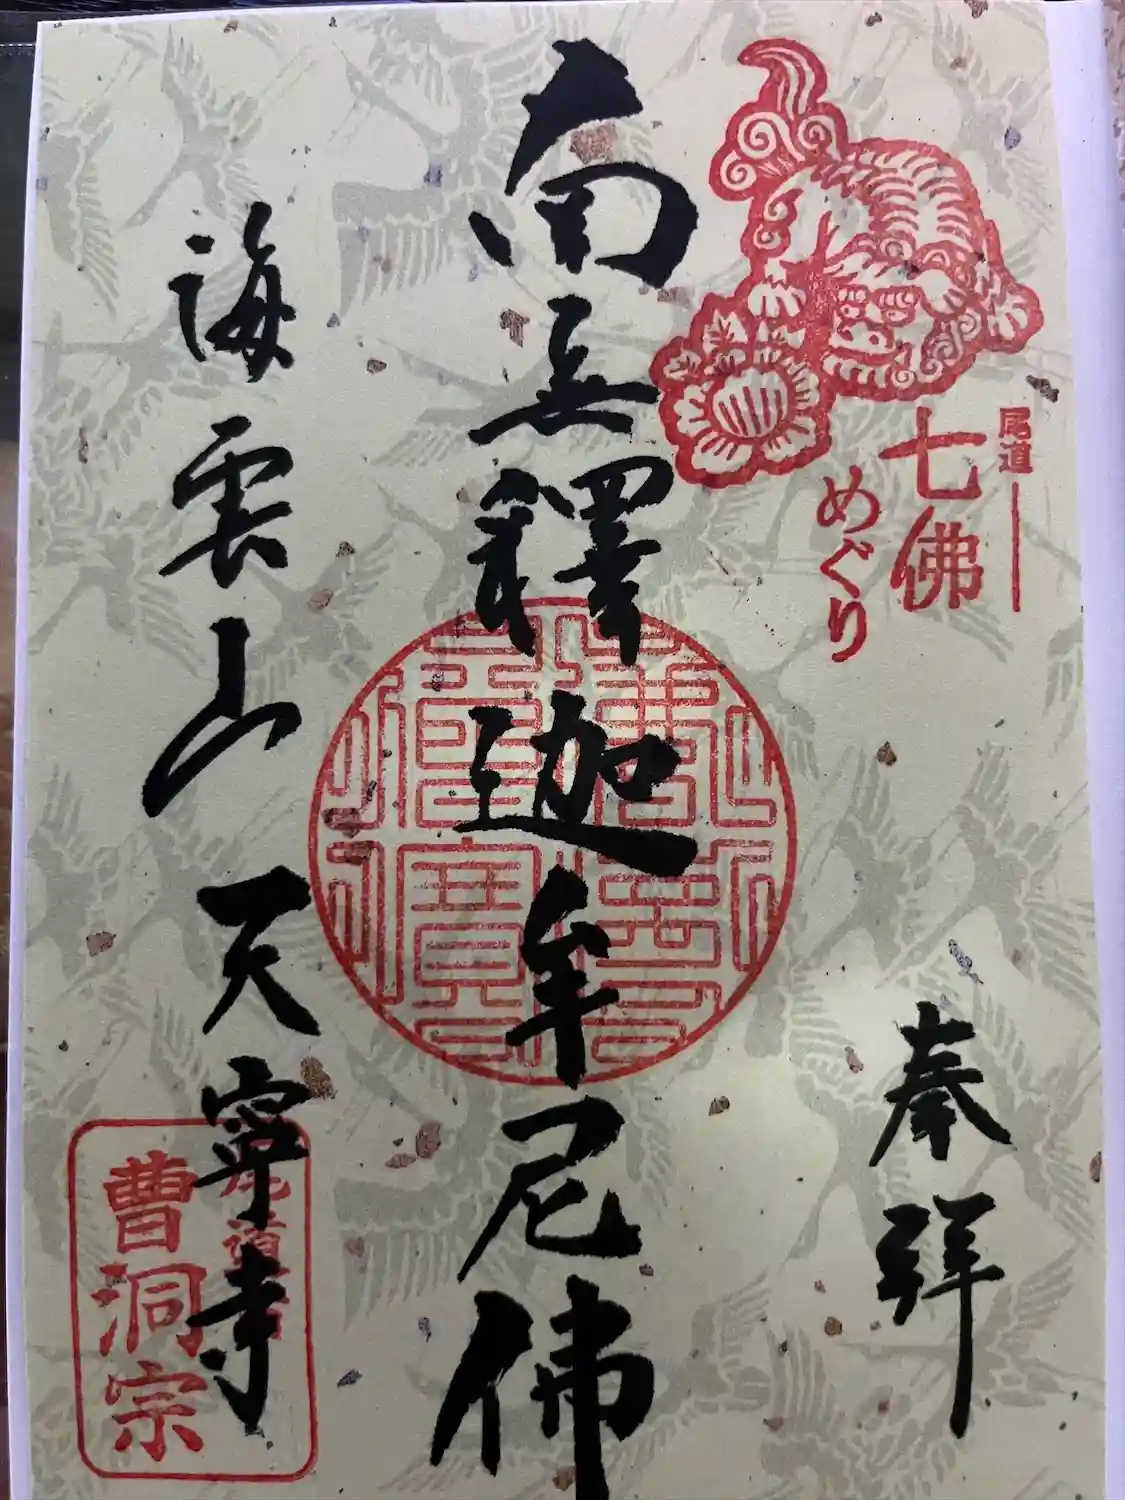 尾道
七佛
めぐり
奉拜
南無釋迦牟尼佛
海雲山 天寧寺
曹洞宗